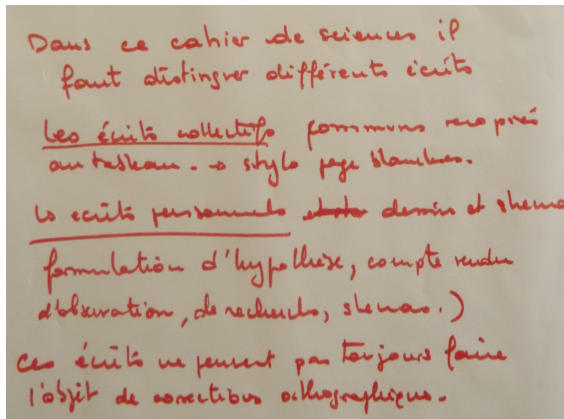 Dans ce cahier de sciences il
faut distinguer différents écrits
Les écrits collectifs communs recopiés
au tableau. → stylo page blanches.
Les écrits personnels dessins et shema
formulation d'hypothèse, compte rendu
d'observation, de recherches, shemas.)
Ces écrits ne peuvent pas toujours faire
l'objet de corrections orthographiques.